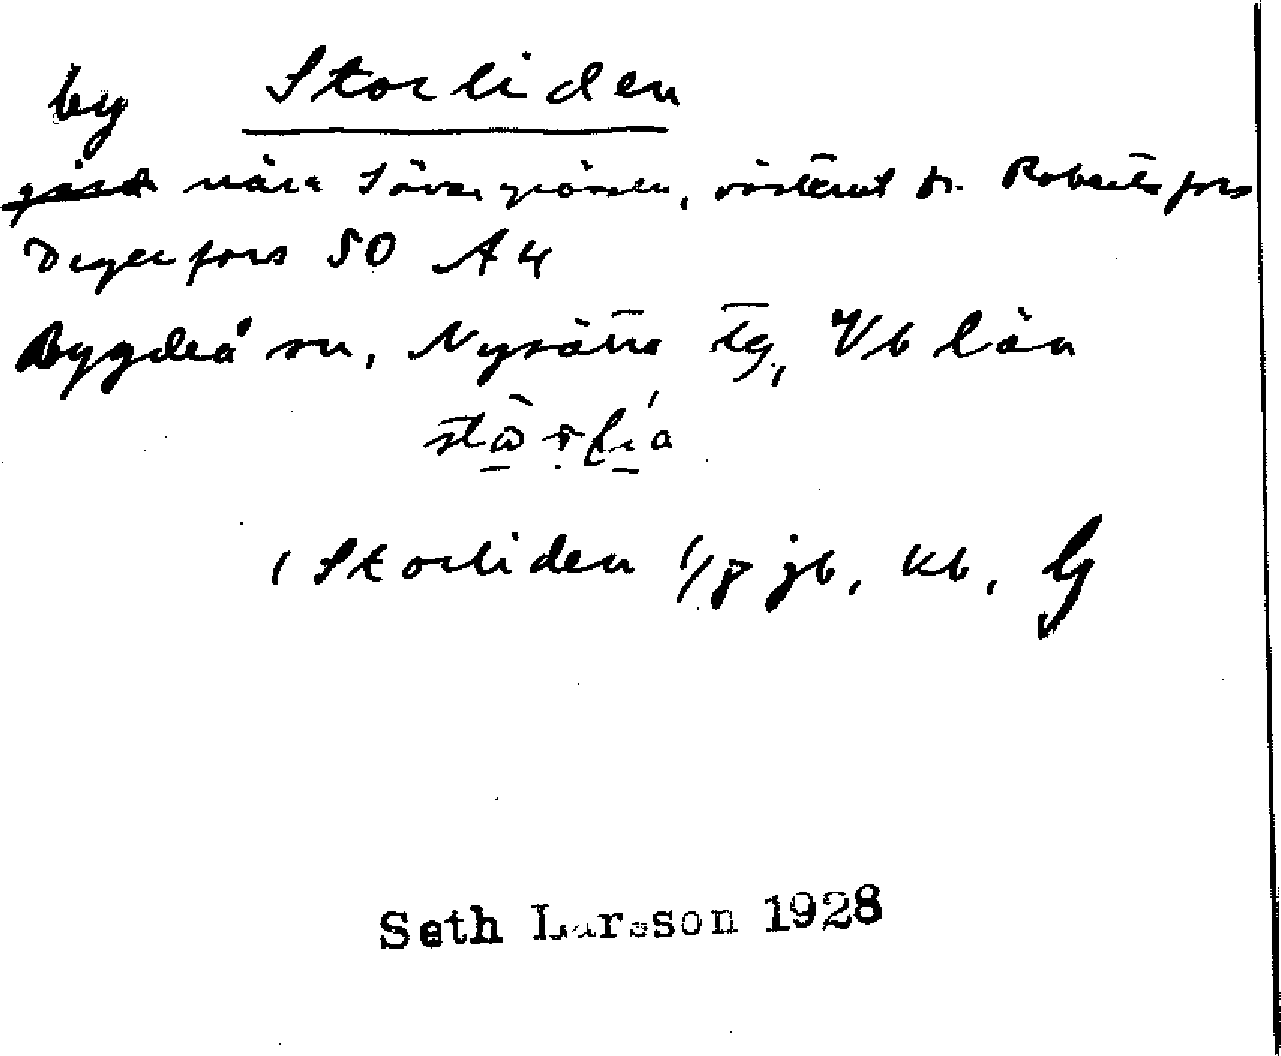 by Storliden
gård nära Sävargränsen, västerut fr. Robertsfors
Degerfors SO A4
Bygdeå sn, Nysätra tg, Vb län
Storliden 1/8 jb, kb, G
Seth Larsson 1928